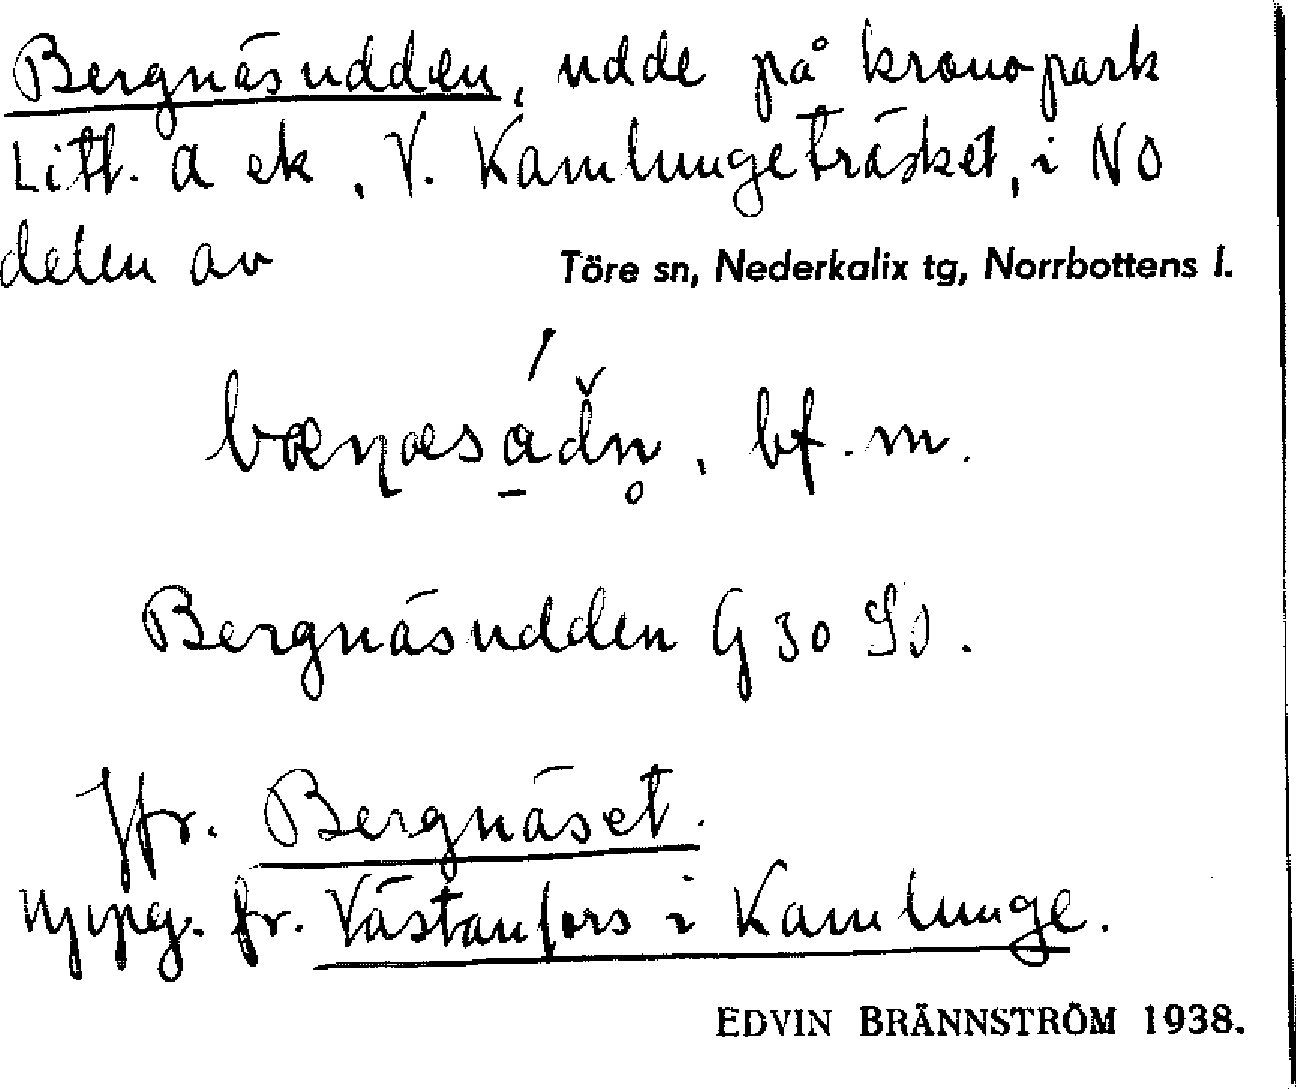 Bergnäsudden, udde på kronopark
Litt. a ek, V. Kamlungeträsket, i NO
delen av Töre sn, Nederkalix tg, Norrbottens l.
bf. m.
Bergnäsudden G 30 SO.
Jfr. Bergnäset.
fr. Västanfors i Kamlunge.
EDVIN BRÄNNSTRÖM 1938.